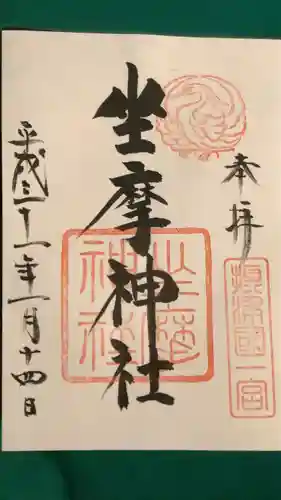 奉拝
摂津國一宮
坐摩神社
坐摩神社
平成三十一年一月十四日